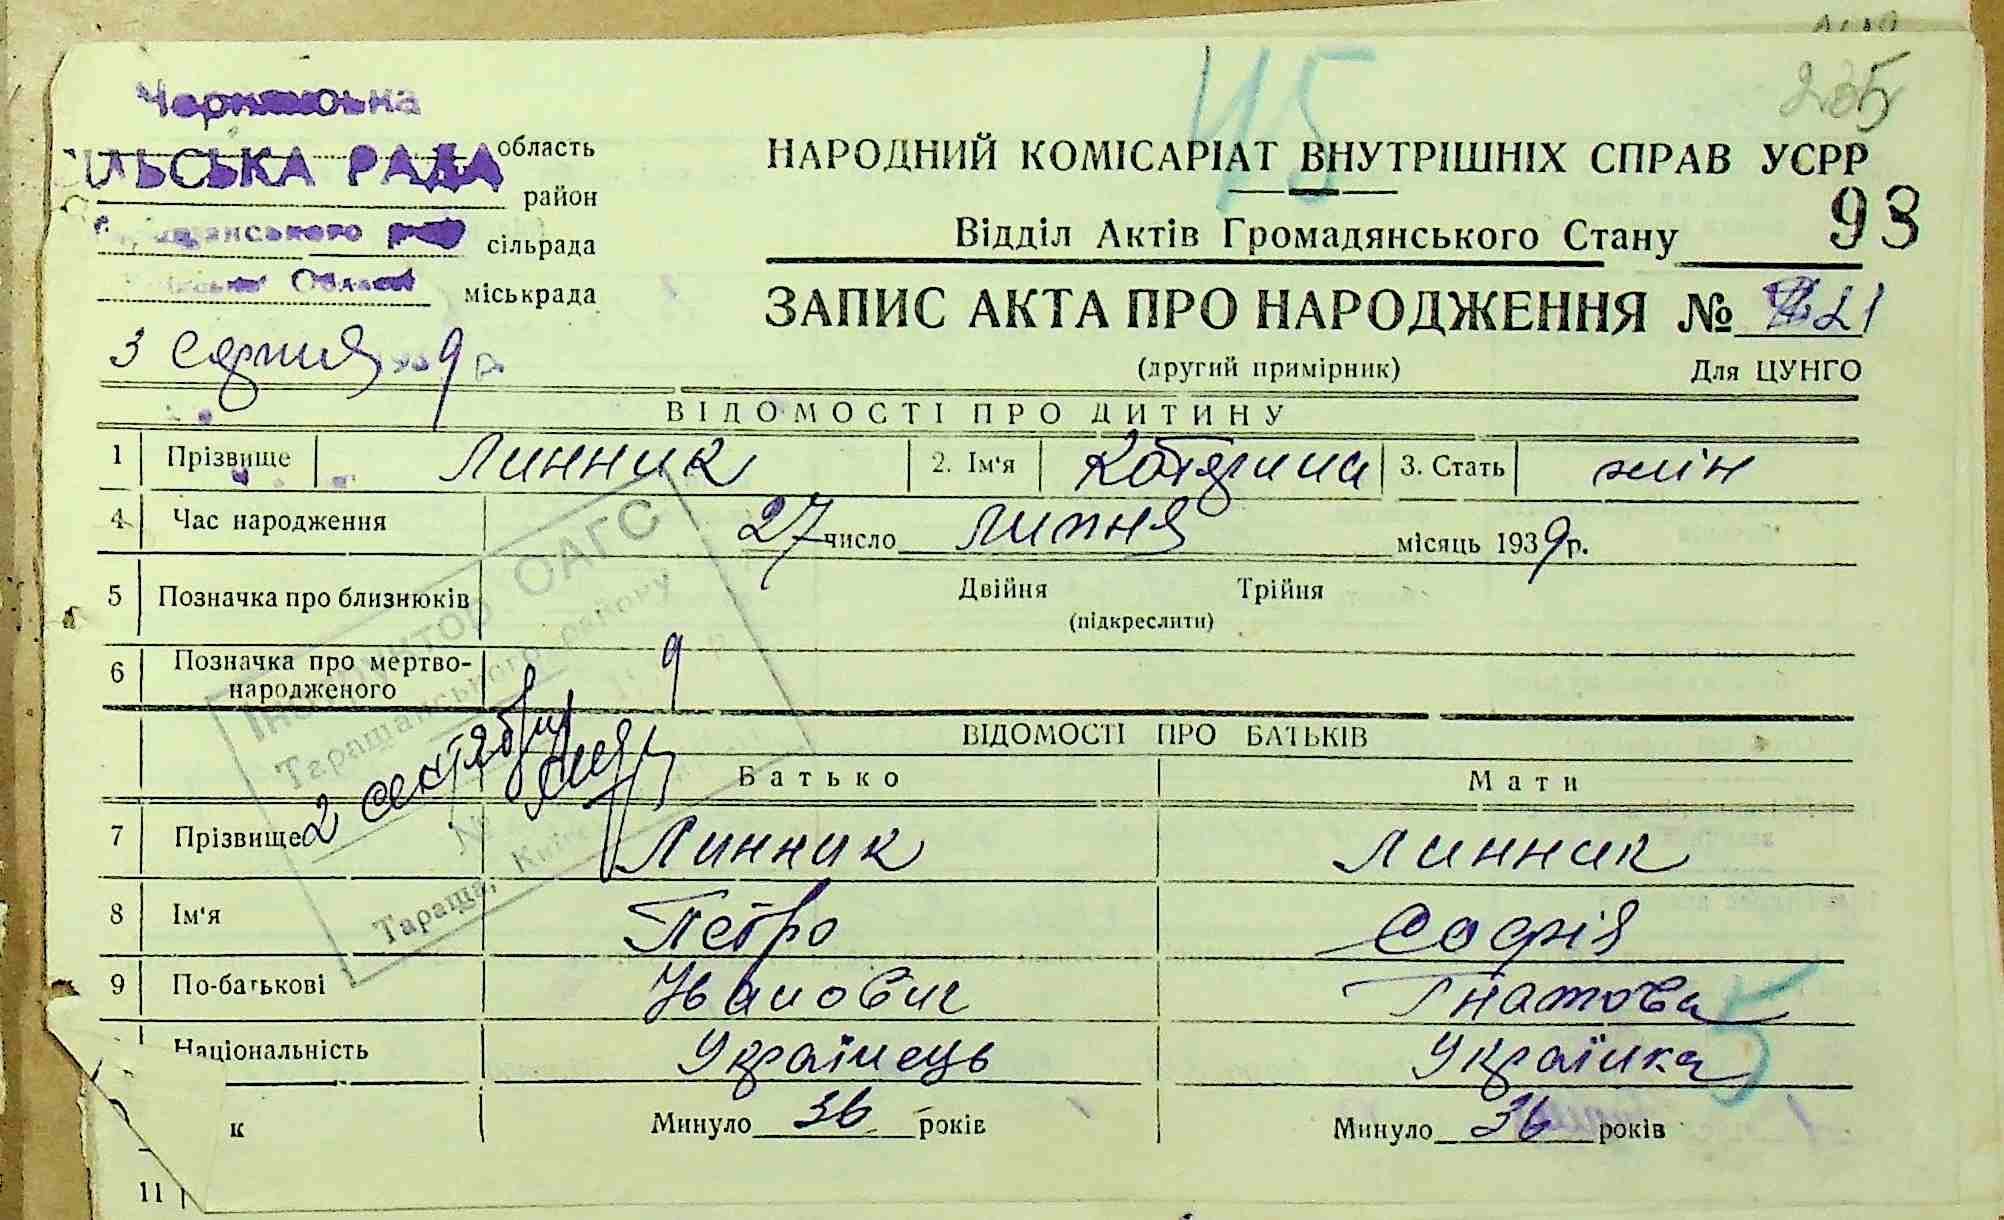 235
область
СІЛЬСЬКА РАДА
район
сільрада
міськрада
НАРОДНИЙ КОМІСАРІАТ ВНУТРІШНІХ СПРАВ УСРР
Відділ Актів Громадянського Стану
93
ЗАПИС АКТА ПРО НАРОДЖЕННЯ № 21
(другий примірник) Для ЦУНГО
3 серпня 1939 р.
ВІДОМОСТІ ПРО ДИТИНУ
1 Прізвище Линник 2. Ім'я Катерина 3. Стать жін
4 Час народження 27 число липня місяць 1939 р.
5 Позначка про близнюків Двійня Трійня
(підкреслити)
6 Позначка про мертво-
народженого
Інструктор ОАГС
Таращанського району
2 сентября 9
№
Тараща, Київ
ВІДОМОСТІ ПРО БАТЬКІВ
Батько Мати
7 Прізвище Линник Линник
8 Ім'я Петро Софія
9 По-батькові Іванович Гнатова
5
Національність Українець Українка
к Минуло 36 років Минуло 36 років
11